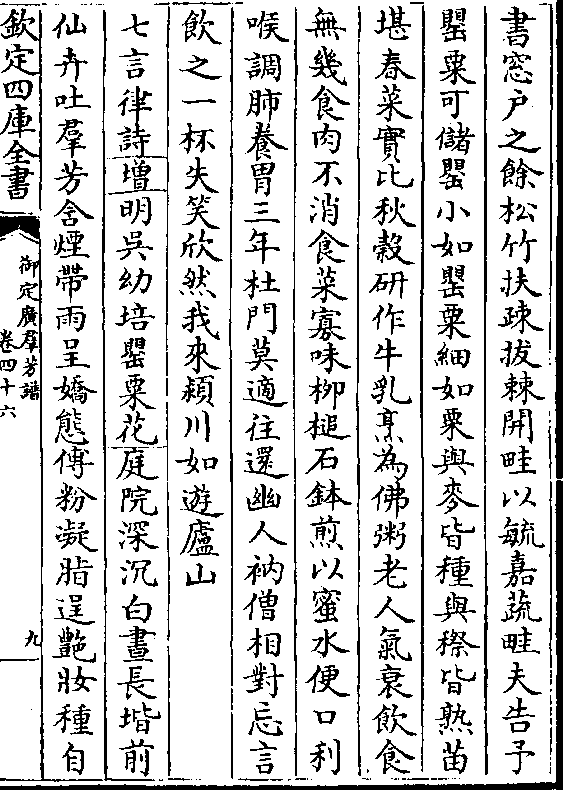 書窓户之餘松竹扶疎拔棘開畦以毓嘉蔬畦夫告予
罌粟可儲罌小如罌粟細如粟與麥皆種與穄皆熟苗
堪春菜實比秋穀硏作牛乳烹為佛粥老人氣衰飲食
無幾食肉不消食菜寡味柳槌石鉢煎以蜜水便口利
喉調肺養胃三年杜門莫適往還幽人衲僧相對忘言
飲之一杯失笑欣然我來頴川如遊廬山
七言律詩增明吳幼培罌粟花庭院深沉白晝長堦前
仙卉吐羣芳含煙帶雨呈嬌態傅粉凝脂逞艷妝種自
欽定四庫全書
御定廣羣芳譜
卷四十六
九